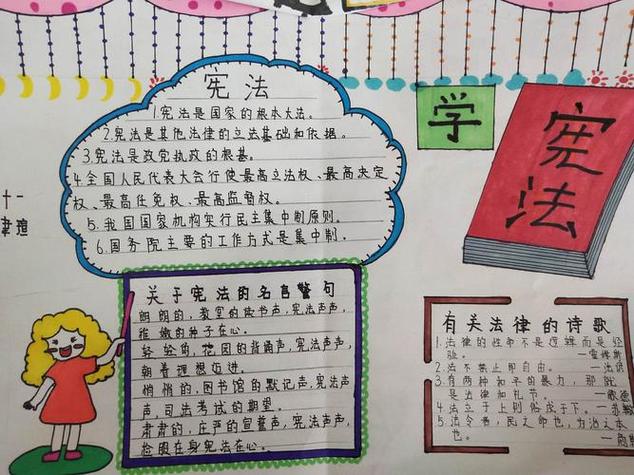 宪法
1.宪法是国家的根本大法。
2.宪法是其他法律的立法基础和依据。
3.宪法是政党执政的根基。
4.全国人民代表大会行使最高立法权、最高决定
权、最高任免权、最高监督权。
5.我国国家机构实行民主集中制原则。
6.国务院主要的工作方式是集中制.
十一
学
宪法
关于宪法的名言警句
朗朗的,教室的读书声,宪法声声,
稚嫩的种子在心。
轻轻的,花园的背诵声,宪法声声,
朝着理想迈进。
悄悄的,图书馆的默记声,宪法声
声,司法考试的期望。
肃肃的,庄严的宣誓声,宪法声声,
检服在身宪法在心。
有关法律的诗歌
1.法律的性命不是逻辑而是经
验。
2.法不禁止即自由。
3.有两种和平的暴力,那就
是法律和礼节。
4.法立于上则俗成于下。
5.法令者,民之命也,为治之本
也。